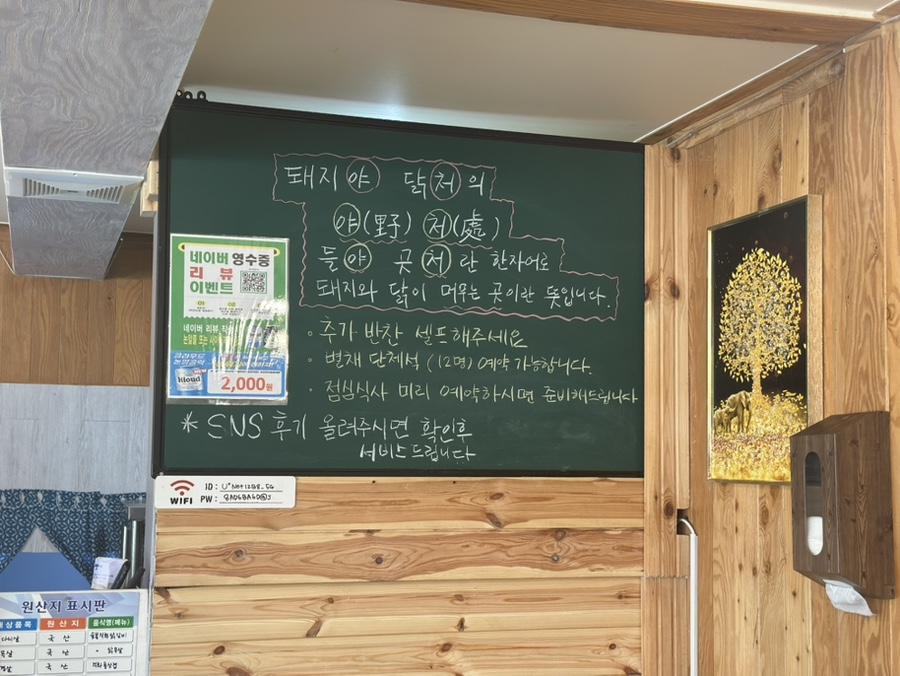 돼지야 닭처의
야(野) 처(處)
들야 곳처란 한자어로
돼지와 닭이 머무는 곳이란 뜻입니다.
· 추가 반찬 셀프해주세요
· 별채 단체석 (12명) 예약 가능합니다.
· 점심식사 미리 예약하시면 준비해드립니다
* SNS 후기 올려주시면 확인후
서비스드립니다
네이버 영수증
리뷰
이벤트
네이버 리뷰
Kloud
2,000원
WIFI
ID :
PW :
원산지 표시판
원산지 음식명(메뉴)
국산
국산
국산